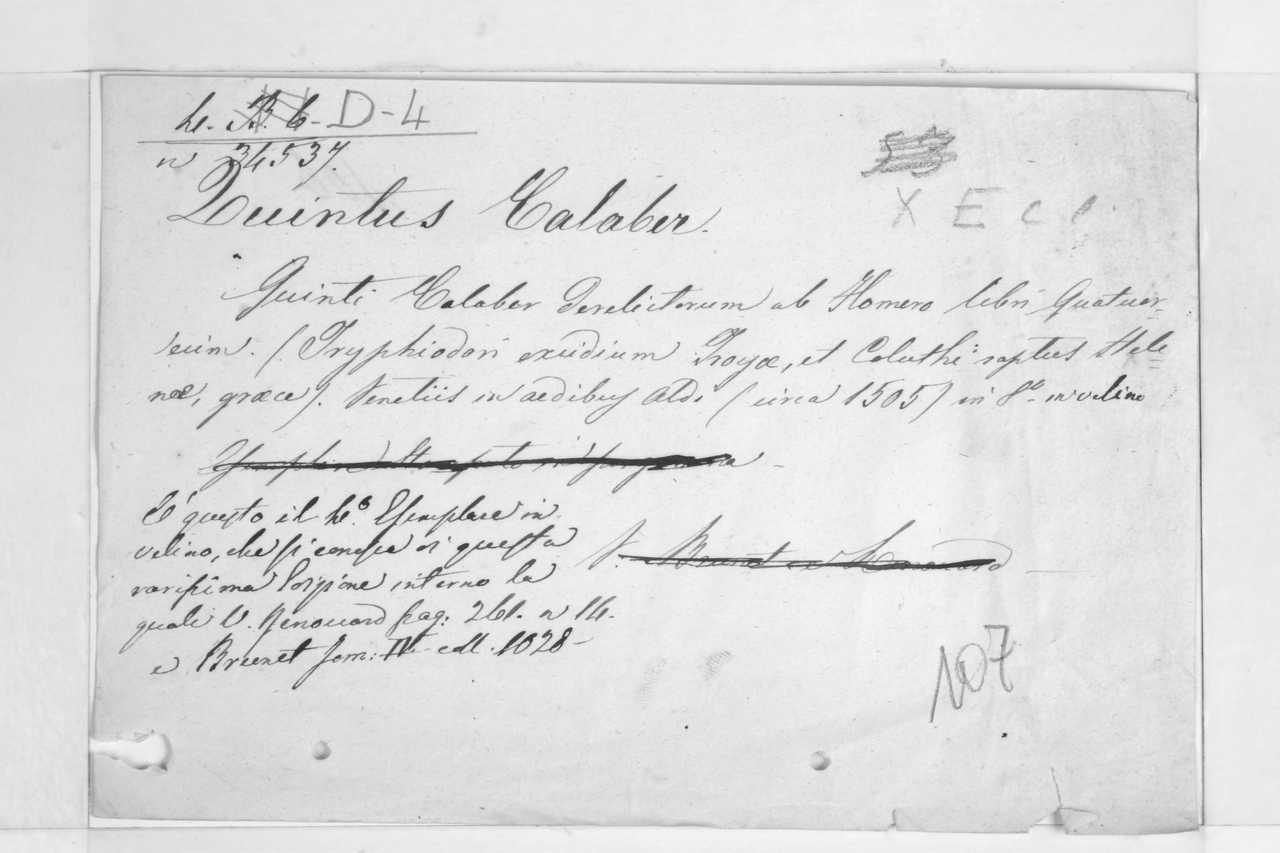 D-4
n 34537.
Quintus Calaber.
Quinti Calaber Derelictorum ab Homero libri Quatuor-
decim. (Tryphiodori excidium Troyæ, et Coluthi raptus Hele-
næ, græce). Venetiis in aedibus Aldi (circa 1505) in 8° in velino
E' questo il Esemplare in
velino, che si conosce di questa
rarissima Edizione intorno la
quale V. Renouard pag: 261. n 14.
e Brunet Tom: IV col. 1028-
V. Brunet e Renouard
X E C C.
107